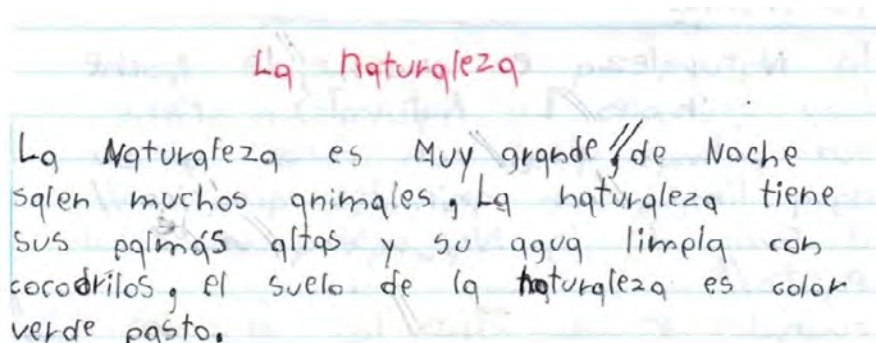 La naturaleza
La Naturaleza es Muy grande, de Noche
salen muchos animales, La naturaleza tiene
sus palmas altas y su agua limpia con
cocodrilos, el suelo de la naturaleza es color
verde pasto.